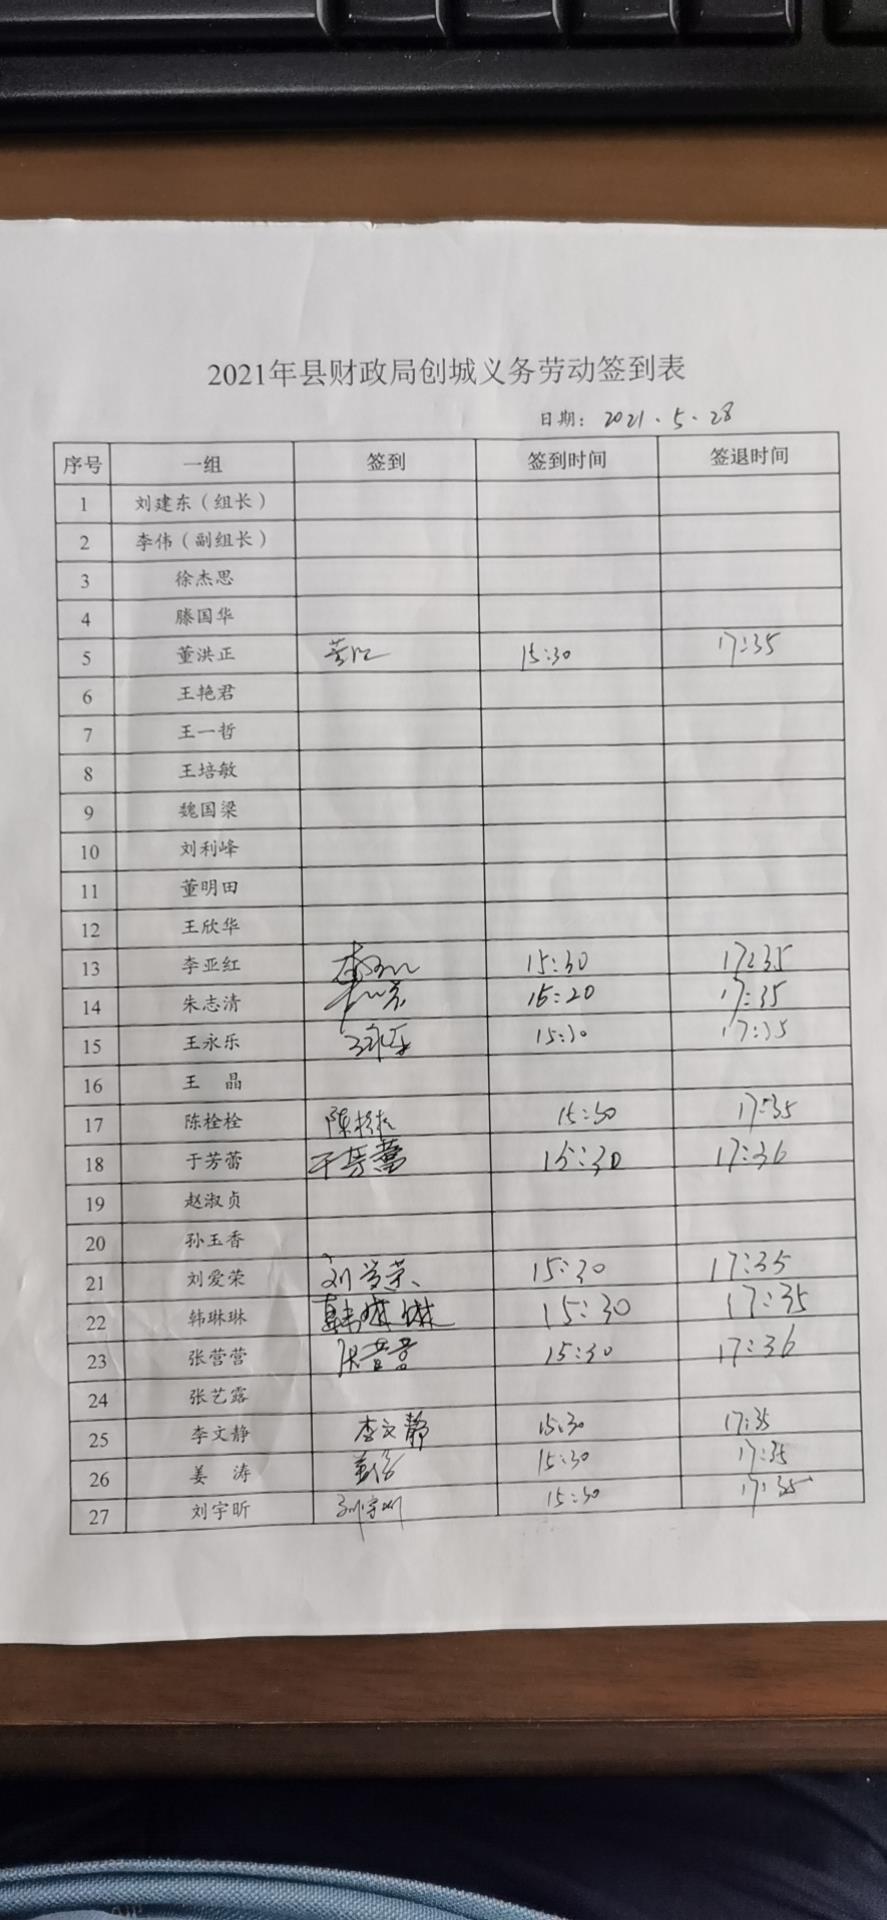 2021年县财政局创城义务劳动签到表
日期： 2021.5.28
序号 一组 签到 签到时间 签退时间
1 刘建东（组长）
2 李伟（副组长）
3 徐杰思
4 滕国华
5 董洪正 15:30 17:35
6 王艳君
7 王一哲
8 王培敏
9 魏国梁
10 刘利峰
11 董明田
12 王欣华
13 李亚红 15:30 17:35
14 朱志清 15:20 17:35
15 王永乐 王永乐 15:30 17:35
16 王 晶
17 陈栓栓 陈栓栓 15:30 17:35
18 于芳蕾 于芳蕾 15:30 17:36
19 赵淑贞
20 孙玉香
21 刘爱荣 刘爱荣 15:30 17:35
22 韩琳琳 韩琳琳 15:30 17:35
23 张营营 张营营 15:30 17:36
24 张艺露
25 李文静 李文静 15:30 17:35
26 姜 涛 姜涛 15:30 17:35
27 刘宇昕 刘宇昕 15:30 17:35